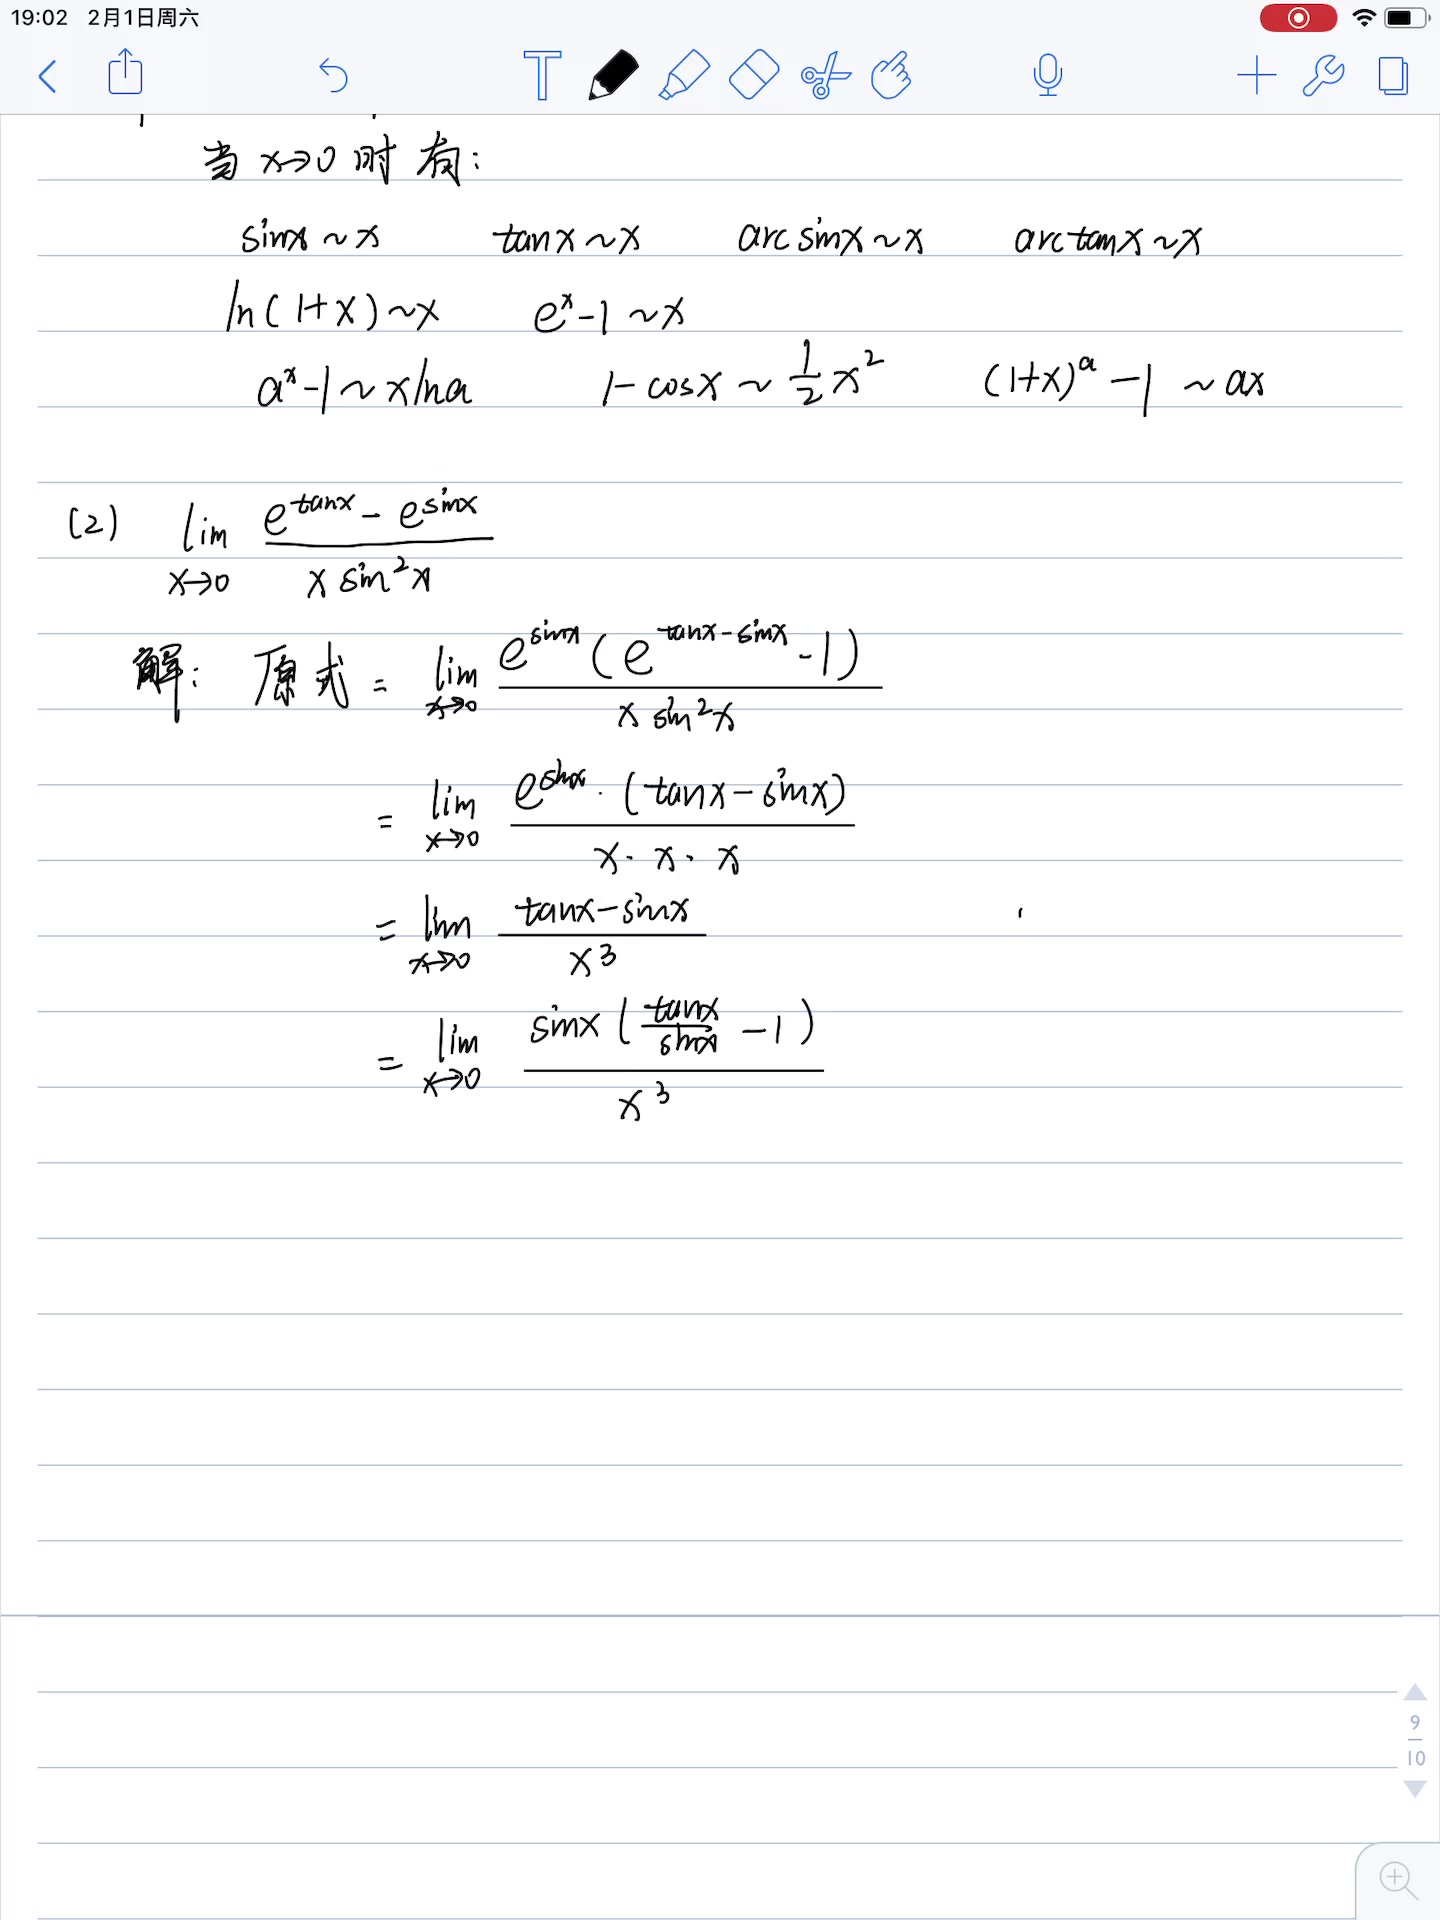 19:02 2月1日周六
T
当 x→0 时 有:
sinx ~ x tanx ~ x arcsinx ~ x arctanx ~ x
ln(1+x) ~ x e^x - 1 ~ x
a^x - 1 ~ xlna 1 - cosx ~ 1/2 x^2 (1+x)^a - 1 ~ ax
(2) lim x→0 (e^tanx - e^sinx) / (x sin^2 x)
解: 原式 = lim x→0 e^sinx (e^(tanx-sinx) - 1) / (x sin^2 x)
= lim x→0 e^sinx · (tanx - sinx) / (x · x · x)
= lim x→0 (tanx - sinx) / x^3
= lim x→0 sinx (tanx/sinx - 1) / x^3
9
10